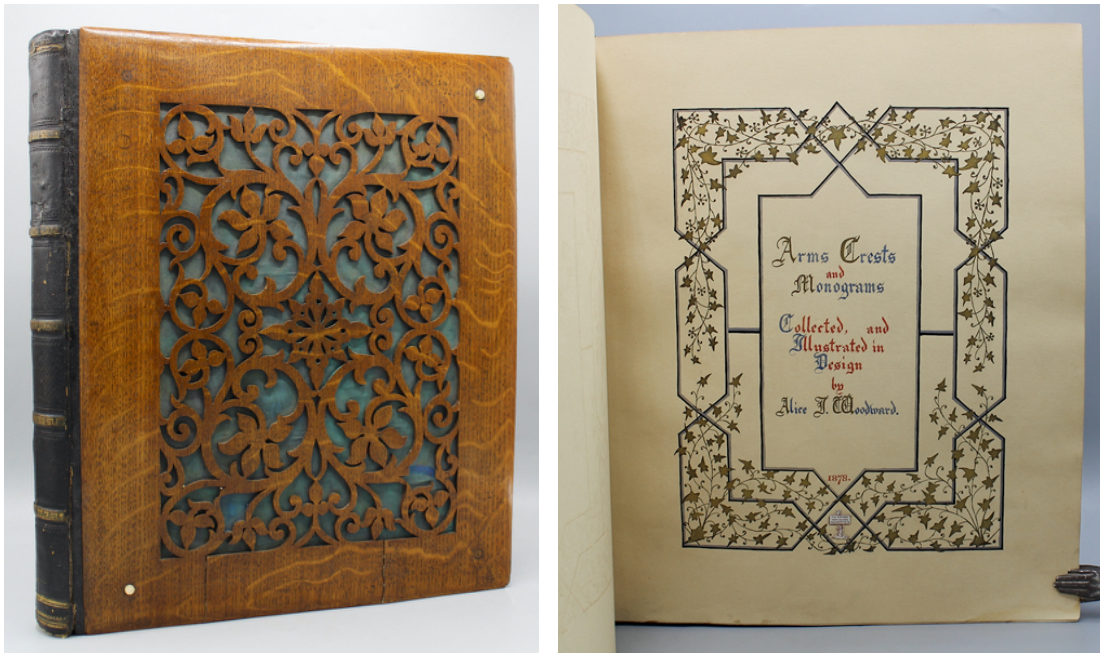 Arms Crests
and
Monograms
Collected, and
Illustrated in
Design
by
Alice J. Woodward.
1878.